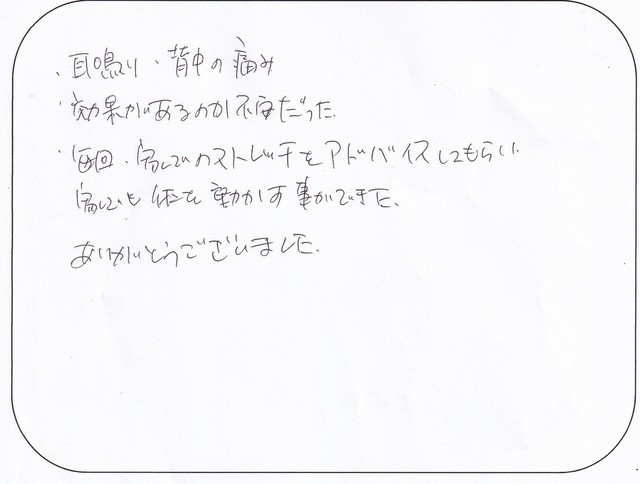 ・耳鳴り・背中の痛み
・効果があるのか不安だった
・毎回、家でのストレッチをアドバイスしてもらい
家でも体を動かす事ができた。
ありがとうございました。